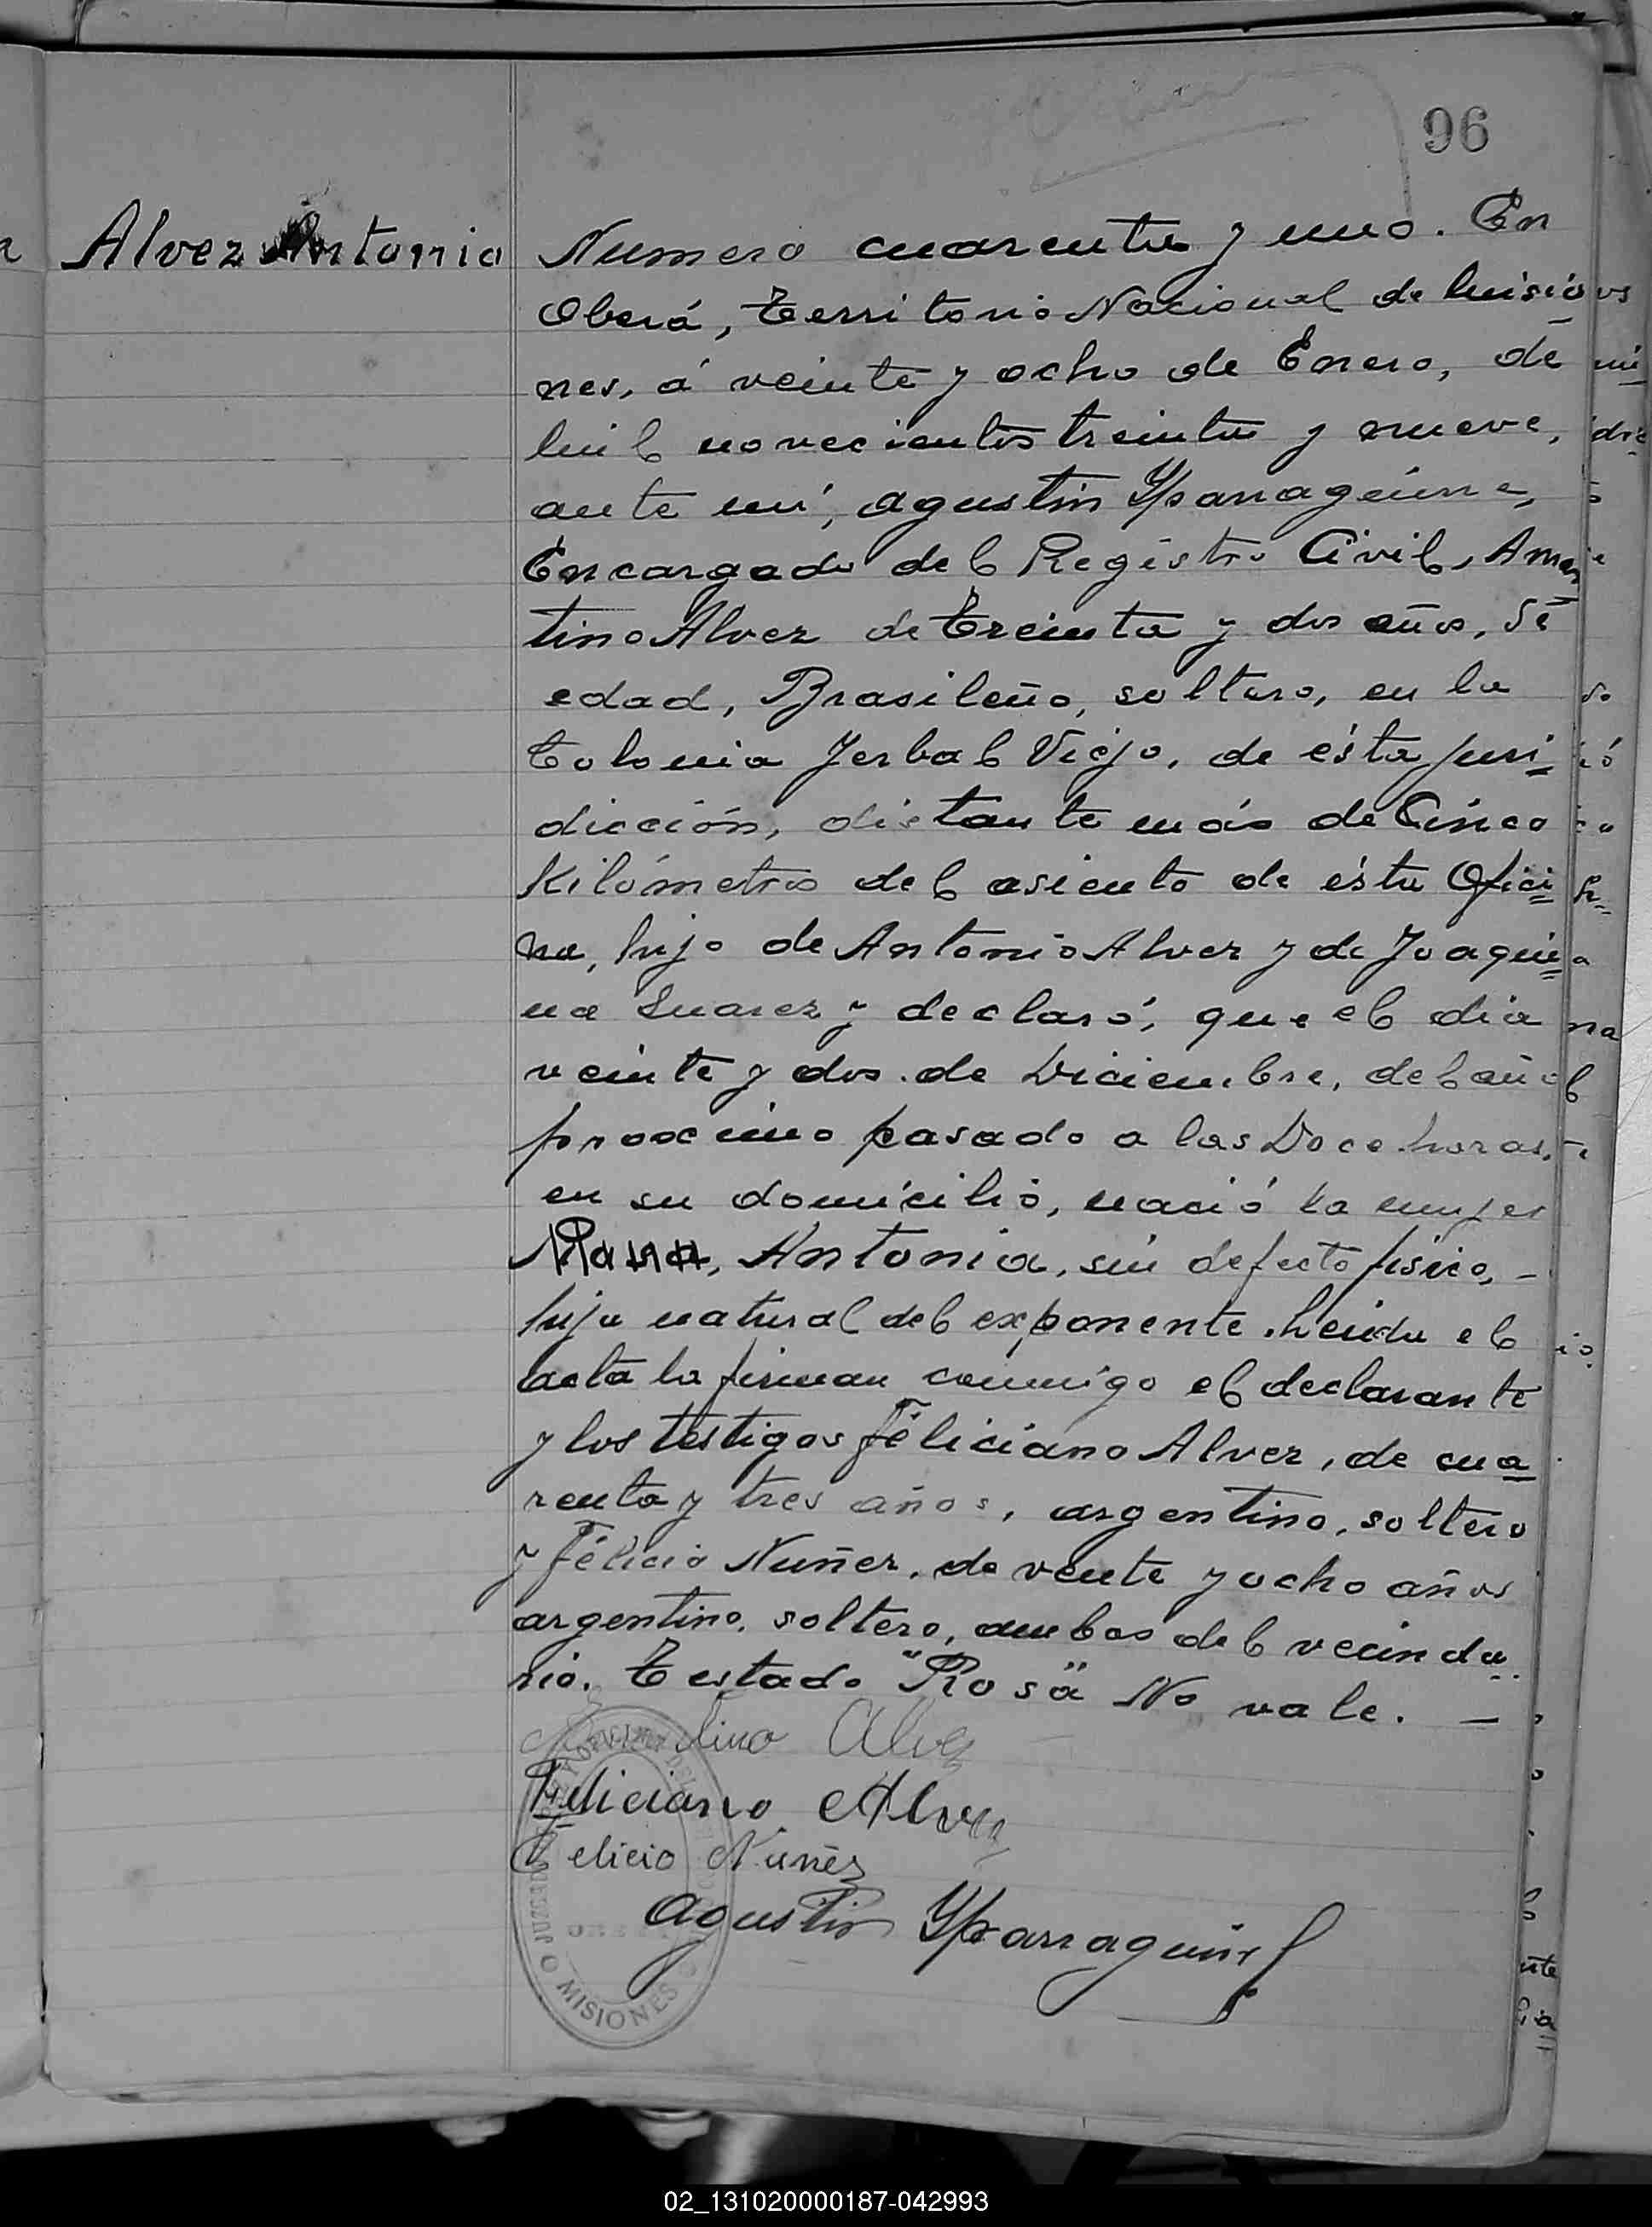 96
Alvez Antonia
Numero cuarenta y uno. En
Oberá, Territorio Nacional de Misio
nes, á veinte y ocho de Enero, de
mil novecientos treinta y nueve,
ante mí, Agustin Yparraguirre,
Encargado del Registro Civil, Aman
tino Alvez de Treinta y dos años, de
edad, Brasileño, soltero, en la
Colonia Yerbal Viejo, de ésta juri
dicción, distante más de Cinco
Kilómetros del asiento de ésta Ofici
na, hijo de Antonio Alvez y de Joaqui
na Suarez y declaró; que el dia
veinte y dos de Diciembre, del año
proximo pasado a las Doce horas,
en su domicilio, nació la mujer
Antonia, sin defecto fisico, -
hija natural del exponente. Leida el
acta la firman conmigo el declarante
y los testigos Féliciano Alvez, de cua
renta y tres años, argentino, soltero
y Félicio Nuñez, de veinte y ocho años
argentino, soltero, ambos del vecinda
rio. Testado "Rosa" No vale. —
tino Alvez
Feliciano Alvez
Felicio Nuñez
Agustin Yparraguirre
JUZGADO
MISIONES
02_131020000187-042993